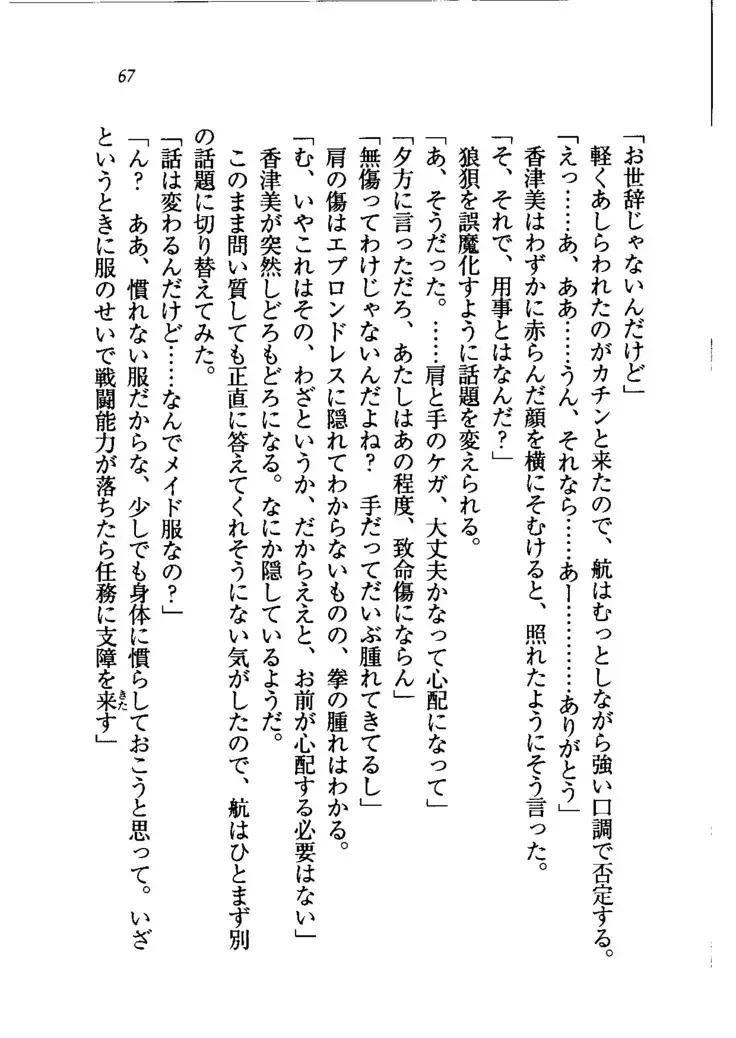 67
「お世辞じゃないんだけど」
軽くあしらわれたのがカチンと来たので、航はむっとしながら強い口調で否定する。
「えっ……あ、ああ……うん、それなら……あー…………ありがとう」
香津美はわずかに赤らんだ顔を横にそむけると、照れたようにそう言った。
「そ、それで、用事とはなんだ？」
狼狽を誤魔化すように話題を変えられる。
「あ、そうだった。……肩と手のケガ、大丈夫かなって心配になって」
「夕方に言っただろ、あたしはあの程度、致命傷にならん」
「無傷ってわけじゃないんだよね？　手だってだいぶ腫れてきてるし」
肩の傷はエプロンドレスに隠れてわからないものの、拳の腫れはわかる。
「む、いやこれはその、わざというか、だからええと、お前が心配する必要はない」
香津美が突然しどろもどろになる。なにか隠しているようだ。
このまま問い質しても正直に答えてくれそうにない気がしたので、航はひとまず別
の話題に切り替えてみた。
「話は変わるんだけど……なんでメイド服なの？」
「ん？　ああ、慣れない服だからな、少しでも身体に慣らしておこうと思って。いざ
というときに服のせいで戦闘能力が落ちたら任務に支障を来す」
きた